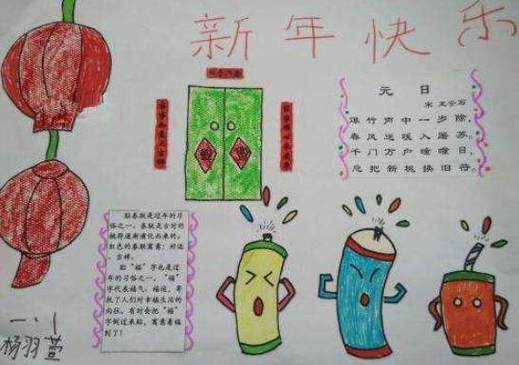 新年快乐
元日
宋 王安石
爆竹声中一岁除，
春风送暖入屠苏。
千门万户曈曈日，
总把新桃换旧符。
贴春联是过年的习
俗之一。春联是古时的
桃符逐渐演化而来的。
红色的春联寓意：好运
、吉祥。
贴“福”字也是过
年的习俗之一，“福”
字代表福气、福运，寄
托了人们对幸福生活的
向往。有时会把“福”
字倒过来贴，寓意着福
到了！
一.1
杨羽萱